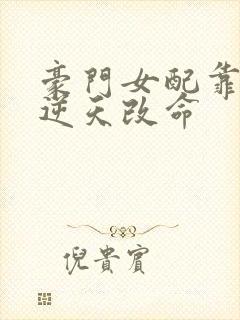 豪門女配靠
逆天改命
倪貴賓